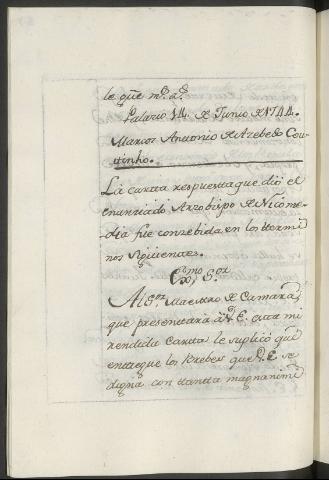 le gũe m.ˢ a.ˢ
Palacio 14. de Junio de 1744.
Marcos Antonio de Azebedo Cou-
tinho.
La carta respuesta que dió el
enunciado Arzobispo de Nicome-
dia fue consebida en los termi
nos siguientes.
Ex.ᵐᵒ S.ᵒʳ
Al S.ᵒʳ Maestro de Camara,
que presentará à V. E. esta mi
rendida Carta le suplicó que
entregue los Brebes que V. E. se
digna con tanta magnanimi